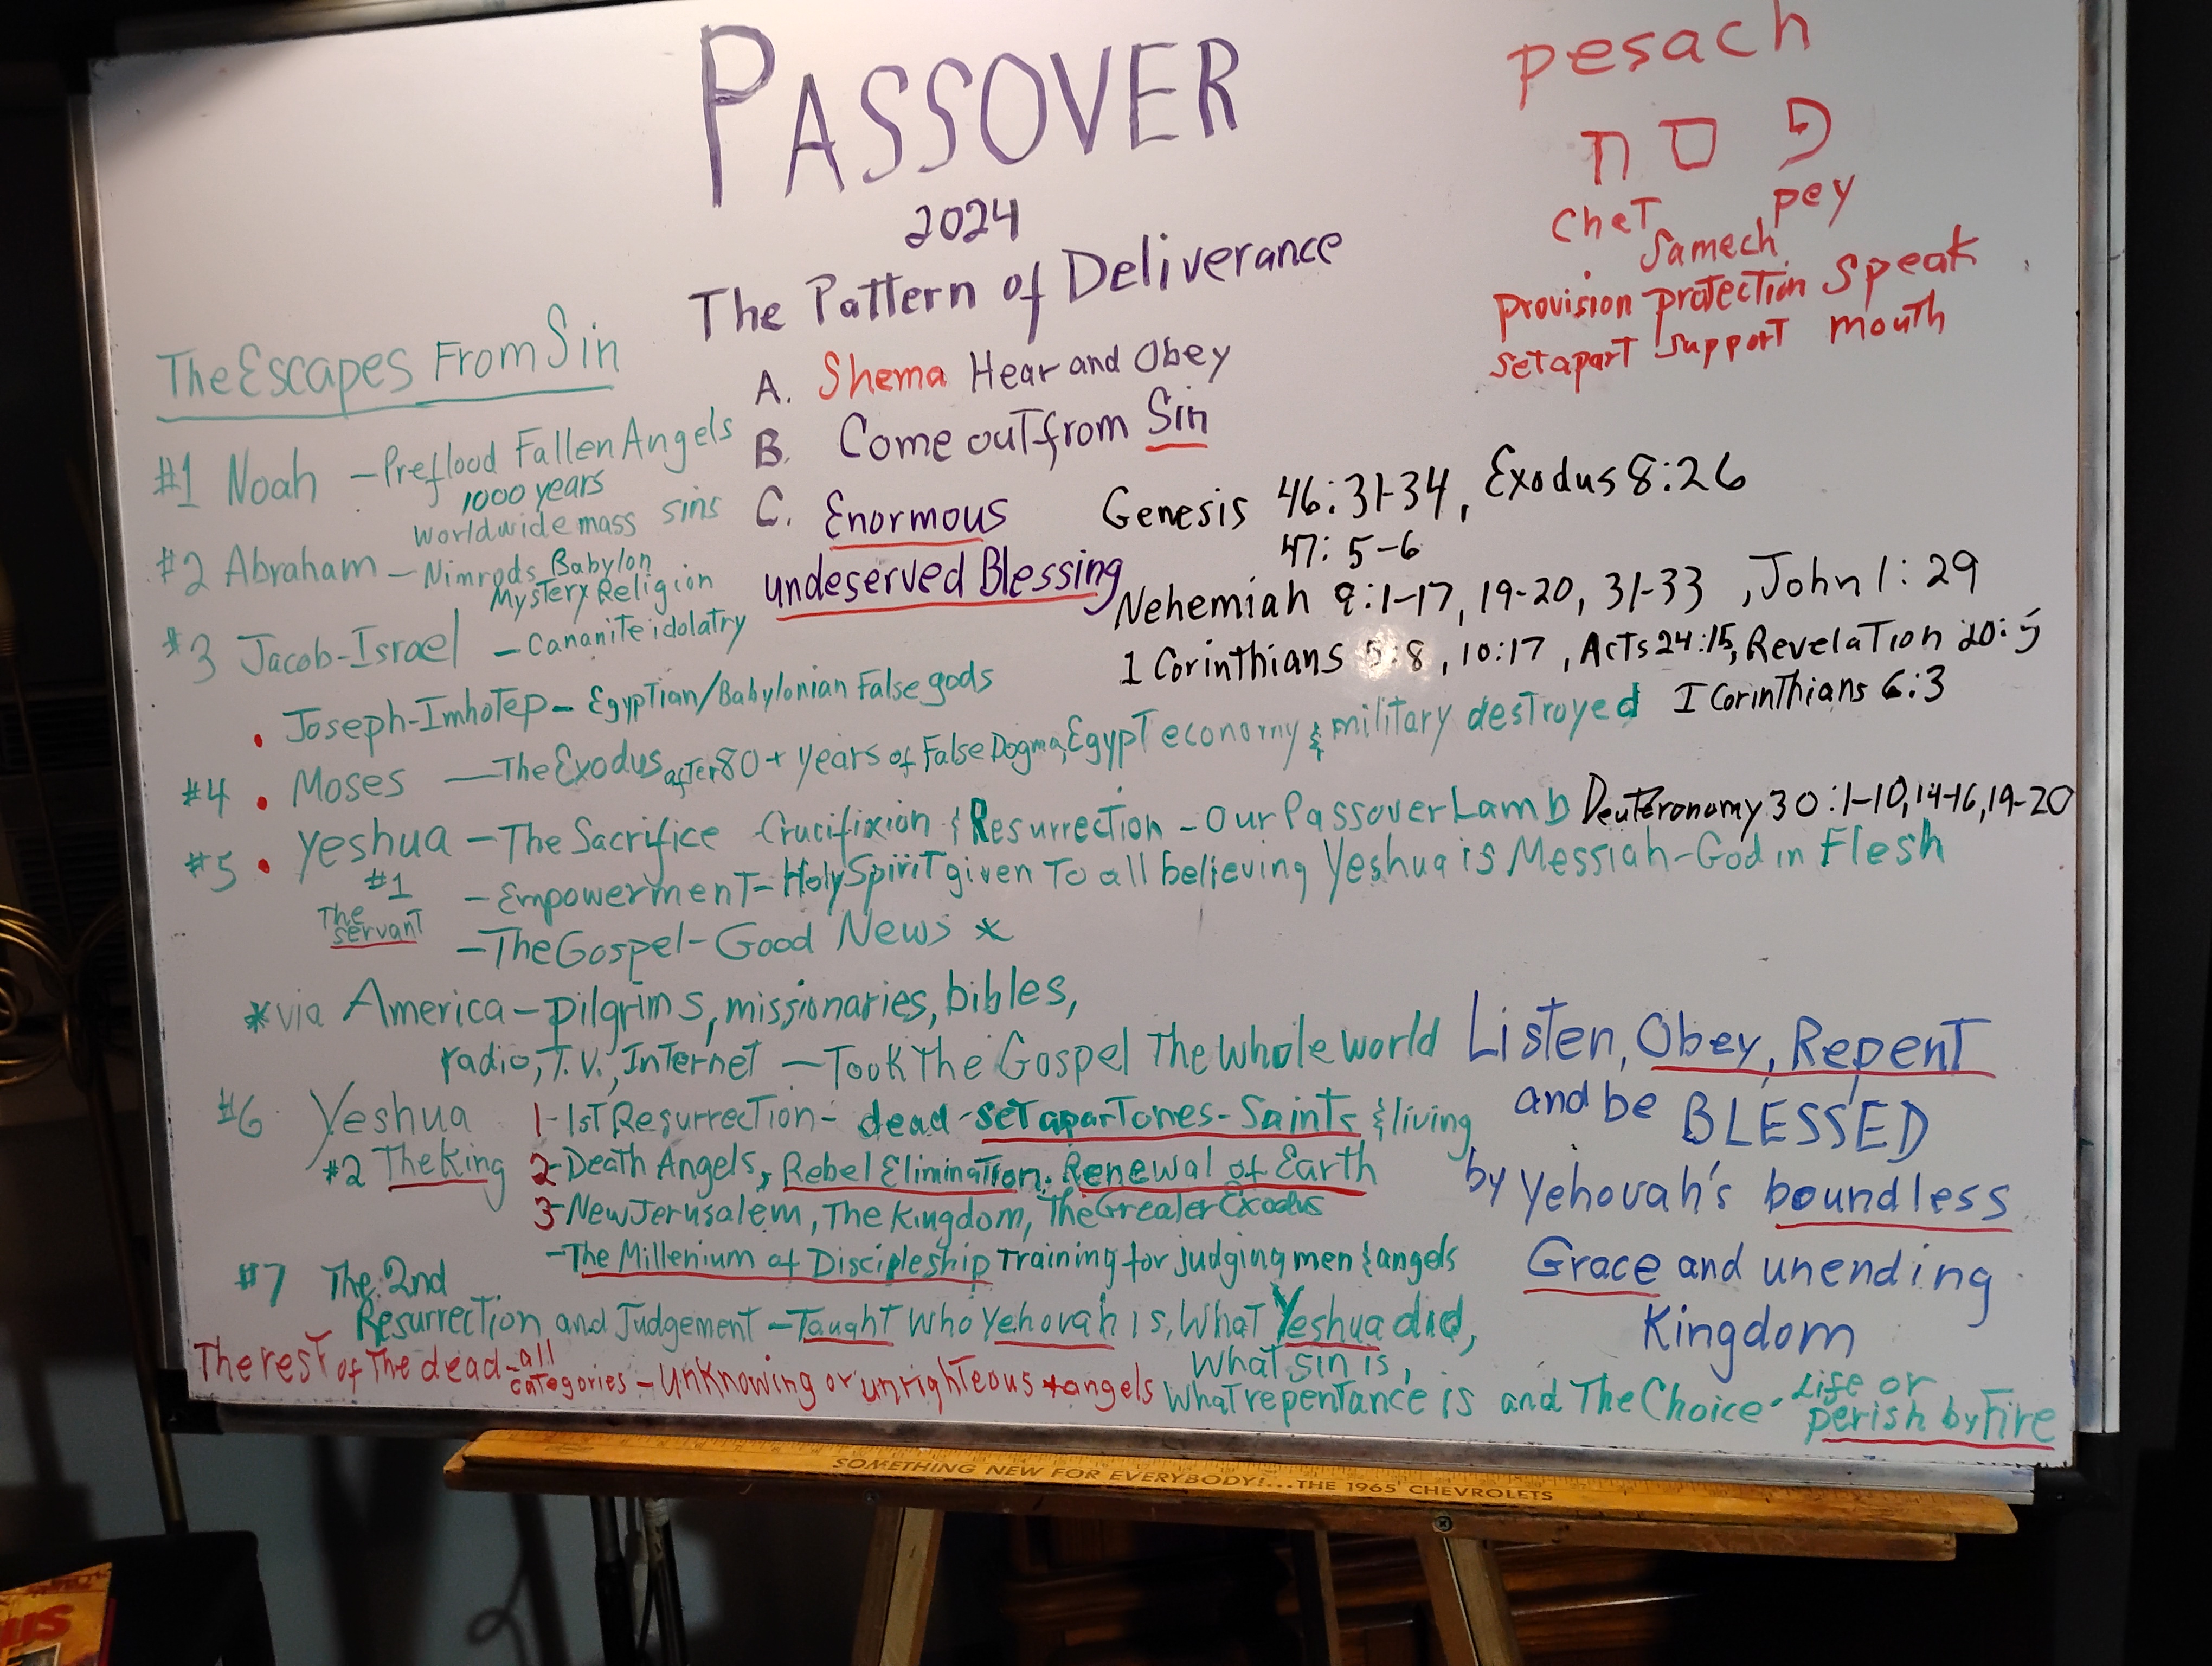 PASSOVER
2024
The Pattern of Deliverance
A. Shema Hear and Obey
B. Come out from Sin
C. Enormous
undeserved Blessing
pesach
פ ס ח
Chet Samech pey
provision protection speak
setapart support mouth
The Escapes From Sin
#1 Noah - Preflood Fallen Angels
1000 years
worldwide mass sins
#2 Abraham - Nimrods Babylon
Mystery Religion
#3 Jacob-Israel - Cananite idolatry
• Joseph-Imhotep - Egyptian/Babylonian False gods
Genesis 46:31-34, Exodus 8:26
47: 5-6
Nehemiah 9:1-17, 19-20, 31-33, John 1:29
1 Corinthians 5:8, 10:17, Acts 24:15, Revelation 20:5
I Corinthians 6:3
#4 • Moses - The Exodus after 80+ years of False Dogma, Egypt economy & military destroyed
#5 • Yeshua - The Sacrifice Crucifixion & Resurrection - Our Passover Lamb
Deuteronomy 30:1-10, 14-16, 19-20
#1
The servant
- Empowerment - Holy Spirit given To all believing Yeshua is Messiah-God in Flesh
- The Gospel - Good News *
* via America - pilgrims, missionaries, bibles,
radio, T.V., Internet - Took The Gospel The whole world
#6 Yeshua 1-1st Resurrection - dead - setapart ones - Saints & living
#2 The King 2-Death Angels, Rebel Elimination. Renewal of Earth
3-New Jerusalem, The Kingdom, The Greater Exodus
- The Millenium of Discipleship Training for judging men & angels
#7 The 2nd
Resurrection and Judgement - Taught who Yehovah is, What Yeshua did,
What sin is,
The rest of The dead - all categories - unknowing or unrighteous + angels
What repentance is and The Choice - Life or
perish by Fire
Listen, Obey, Repent
and be BLESSED
by Yehovah's boundless
Grace and unending
Kingdom
SOMETHING NEW FOR EVERYBODY!...THE 1965 CHEVROLETS